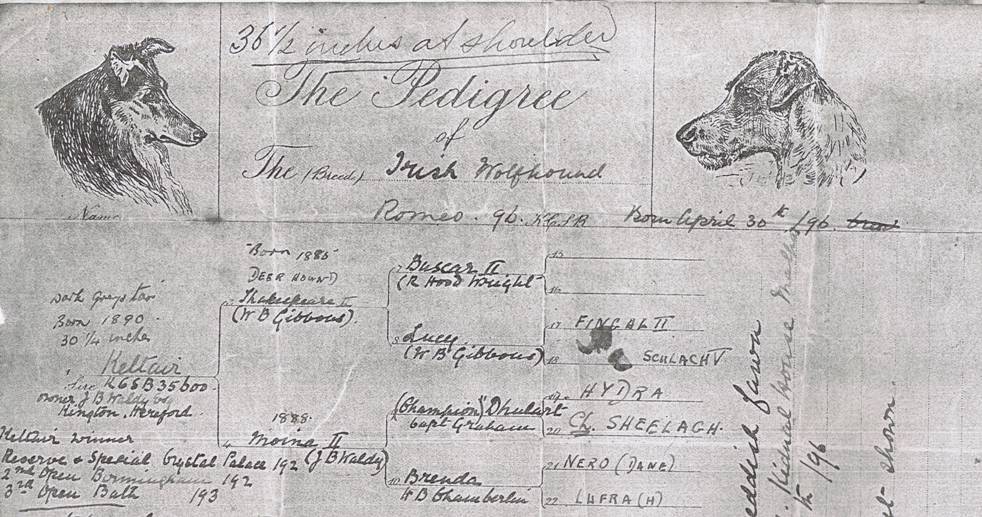 36½ inches at shoulder
The Pedigree
of
The (Breed) Irish Wolfhound
Name
Romeo. 96. KCSB Born April 30th /96.
Born 1885
DEERHOUND
Shakespeare II
(W B Gibbons).
7 Buscar II
(R Hood Wright
15
16
8 Lucy
(W B Gibbons)
17 FINGAL II
18 SCHLACH V
Dark Grey
Born 1890
30¼ inches
1 Keltair
Sire KCSB 35600
owner J B Waldy Esq
Kington, Hereford.
1888.
4 Moina II
(J B Waldy)
(Champion) "Dhulart
Capt Graham
19 HYDRA
20 Ch. SHEELAGH.
10 Brenda
W B Chamberlin
21 NERO (DANE)
22 LUFRA (H)
Keltair winner
Reserve & Special, Crystal Palace 192
2nd Open Birmingham 192
3rd Open Bath 193
eddish fawn
House
/96
shown.